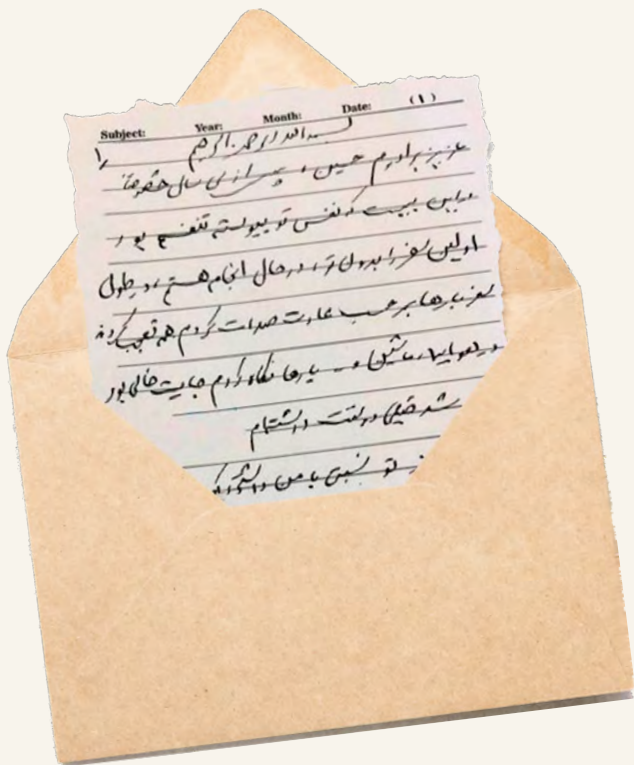 Subject: Year: Month: Date: (1)
بسم الله الرحمن الرحیم
عزیز برادرم حسین، پس از سی سال خصوصاً
در این بیست که نفس تو پیوسته تنفسم بود
اولین سفر را بدون تو در حال انجام هستم، در طول
سفر بارها بر حسب عادت صدات کردم همه تعجب کردند
در هواپیما، ماشین و بارها نگاه کردم جایت خالی بود
شد خیلی دوستت داشته‌ام
تو نسبتی با من